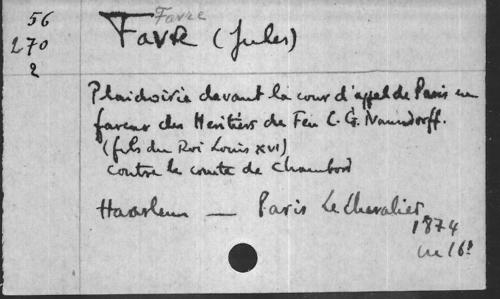 56
270
2
Favre
Favre (Jules)
Plaidoirie devant la cour d'appel de Paris en
faveur des Héritiers de Feu C. G. Naundorff.
(fils du Roi Louis XVI)
contre le comte de Chambord
Haarlem — Paris Le Chevalier
1874
in 16º